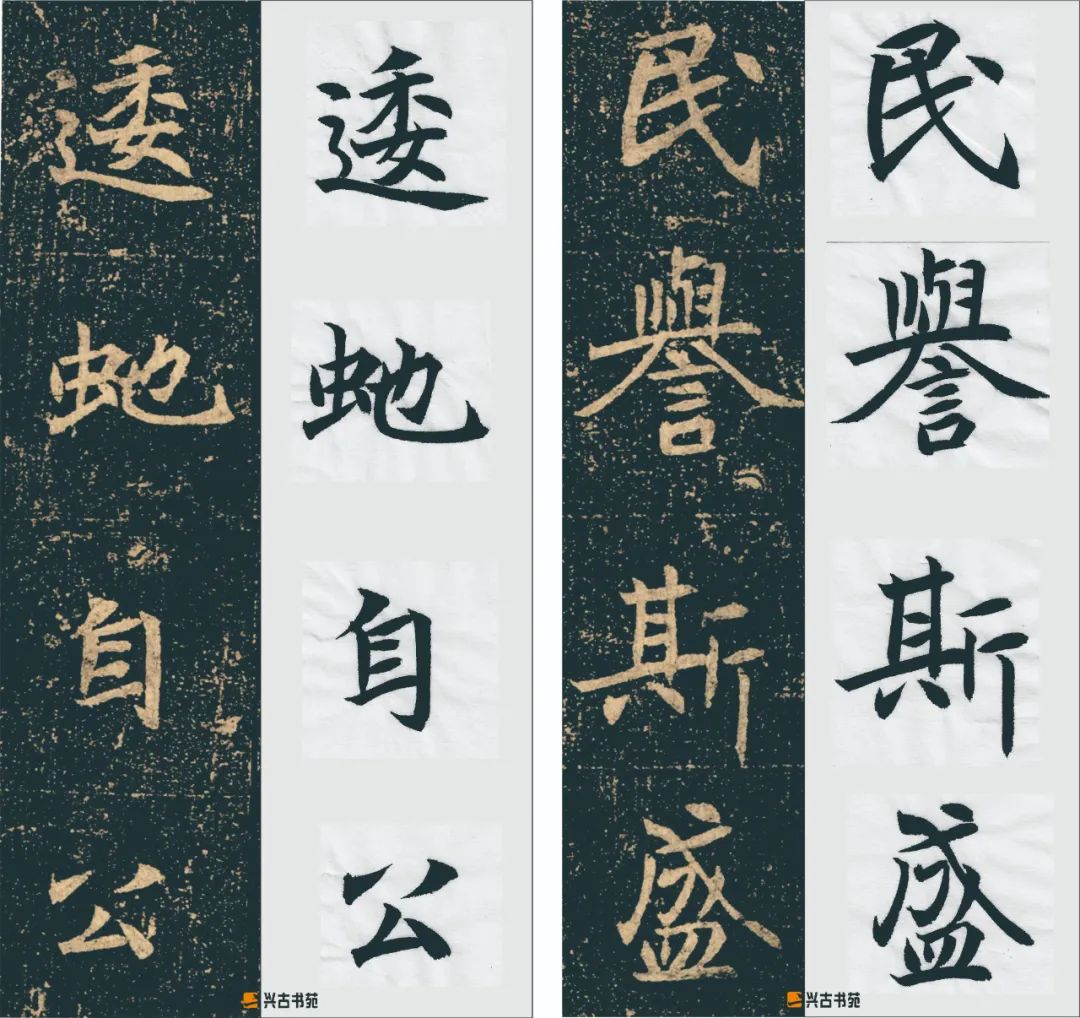 逶蛇自公
逶蛇自公
民譽斯盛
民譽斯盛
兴古书苑
兴古书苑